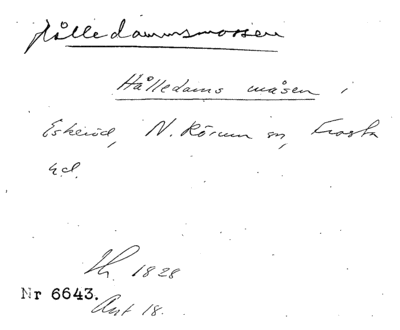 Hålledammsmossen
Hålledams måsen i
Eskeröd, N. Rörum sn, Frosta
hd.
Th. 1828
Nr 6643.
Ant 18.